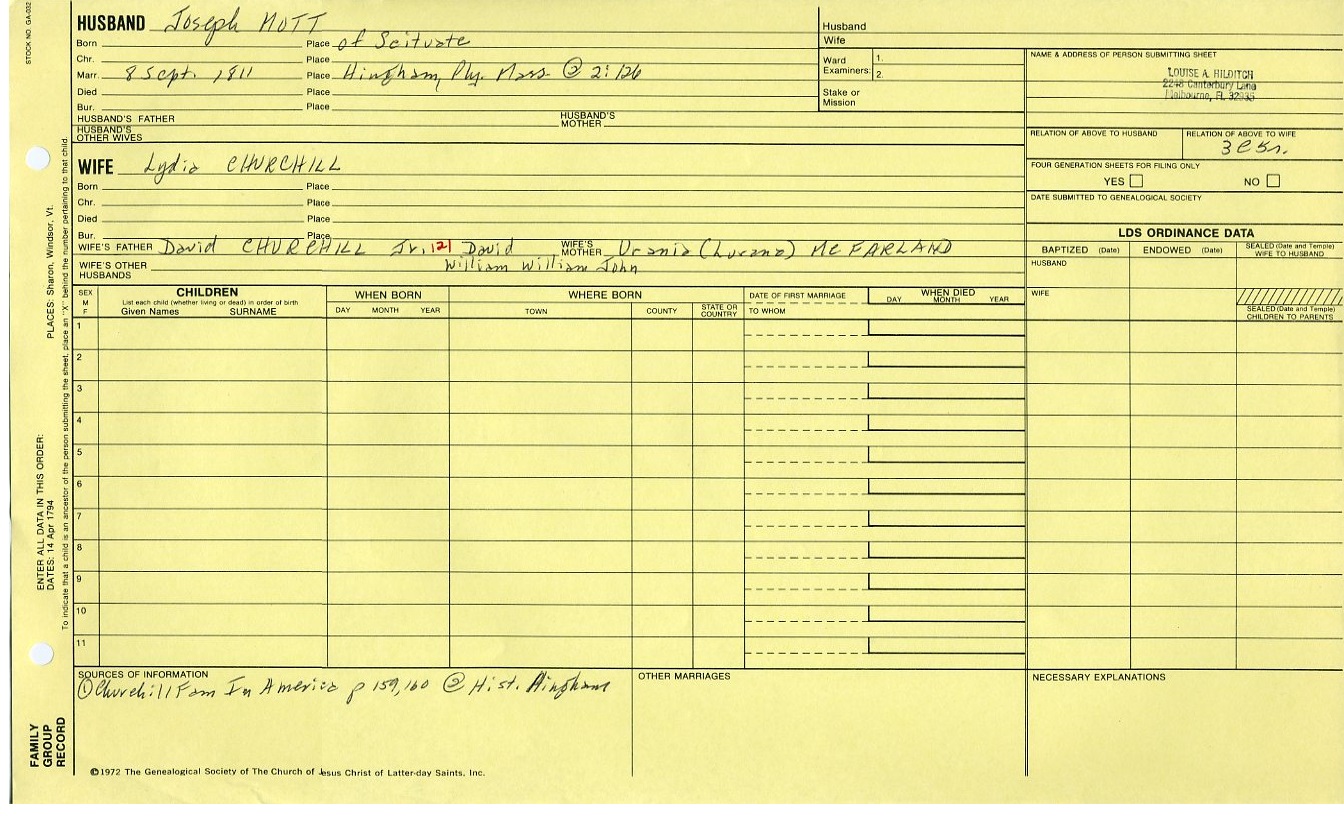 STOCK NO. GA-032
HUSBAND Joseph MOTT
Born Place of Scituate
Chr. Place
Marr. 8 Sept. 1811 Place Hingham, Ply. Mass ② 2:126
Died Place
Bur. Place
HUSBAND'S FATHER HUSBAND'S MOTHER
HUSBAND'S OTHER WIVES
Husband
Wife
Ward Examiners: 1.
2.
Stake or Mission
NAME & ADDRESS OF PERSON SUBMITTING SHEET
LOUISE A. HILDITCH
2248 Canterbury Lane
Melbourne, FL 32935
RELATION OF ABOVE TO HUSBAND RELATION OF ABOVE TO WIFE
3C5r.
FOUR GENERATION SHEETS FOR FILING ONLY
YES NO
DATE SUBMITTED TO GENEALOGICAL SOCIETY
WIFE Lydia CHURCHILL
Born Place
Chr. Place
Died Place
Bur. Place
WIFE'S FATHER David CHURCHILL Jr. 121 David WIFE'S MOTHER Urania (Lurana) MCFARLAND
William William John
WIFE'S OTHER HUSBANDS
LDS ORDINANCE DATA
BAPTIZED (Date) ENDOWED (Date) SEALED (Date and Temple) WIFE TO HUSBAND
HUSBAND
WIFE
SEALED (Date and Temple) CHILDREN TO PARENTS
SEX M F
CHILDREN
List each child (whether living or dead) in order of birth
Given Names SURNAME
WHEN BORN
DAY MONTH YEAR
WHERE BORN
TOWN COUNTY STATE OR COUNTRY
DATE OF FIRST MARRIAGE
TO WHOM
WHEN DIED
DAY MONTH YEAR
1
2
3
4
5
6
7
8
9
10
11
SOURCES OF INFORMATION
① Churchill Fam In America p 159,160 ② Hist. Hingham
OTHER MARRIAGES
NECESSARY EXPLANATIONS
©1972 The Genealogical Society of The Church of Jesus Christ of Latter-day Saints, Inc.
FAMILY GROUP RECORD
ENTER ALL DATA IN THIS ORDER:
DATES: 14 Apr 1794 PLACES: Sharon, Windsor, Vt.
To indicate that a child is an ancestor of the person submitting the sheet, place an "X" behind the number pertaining to that child.